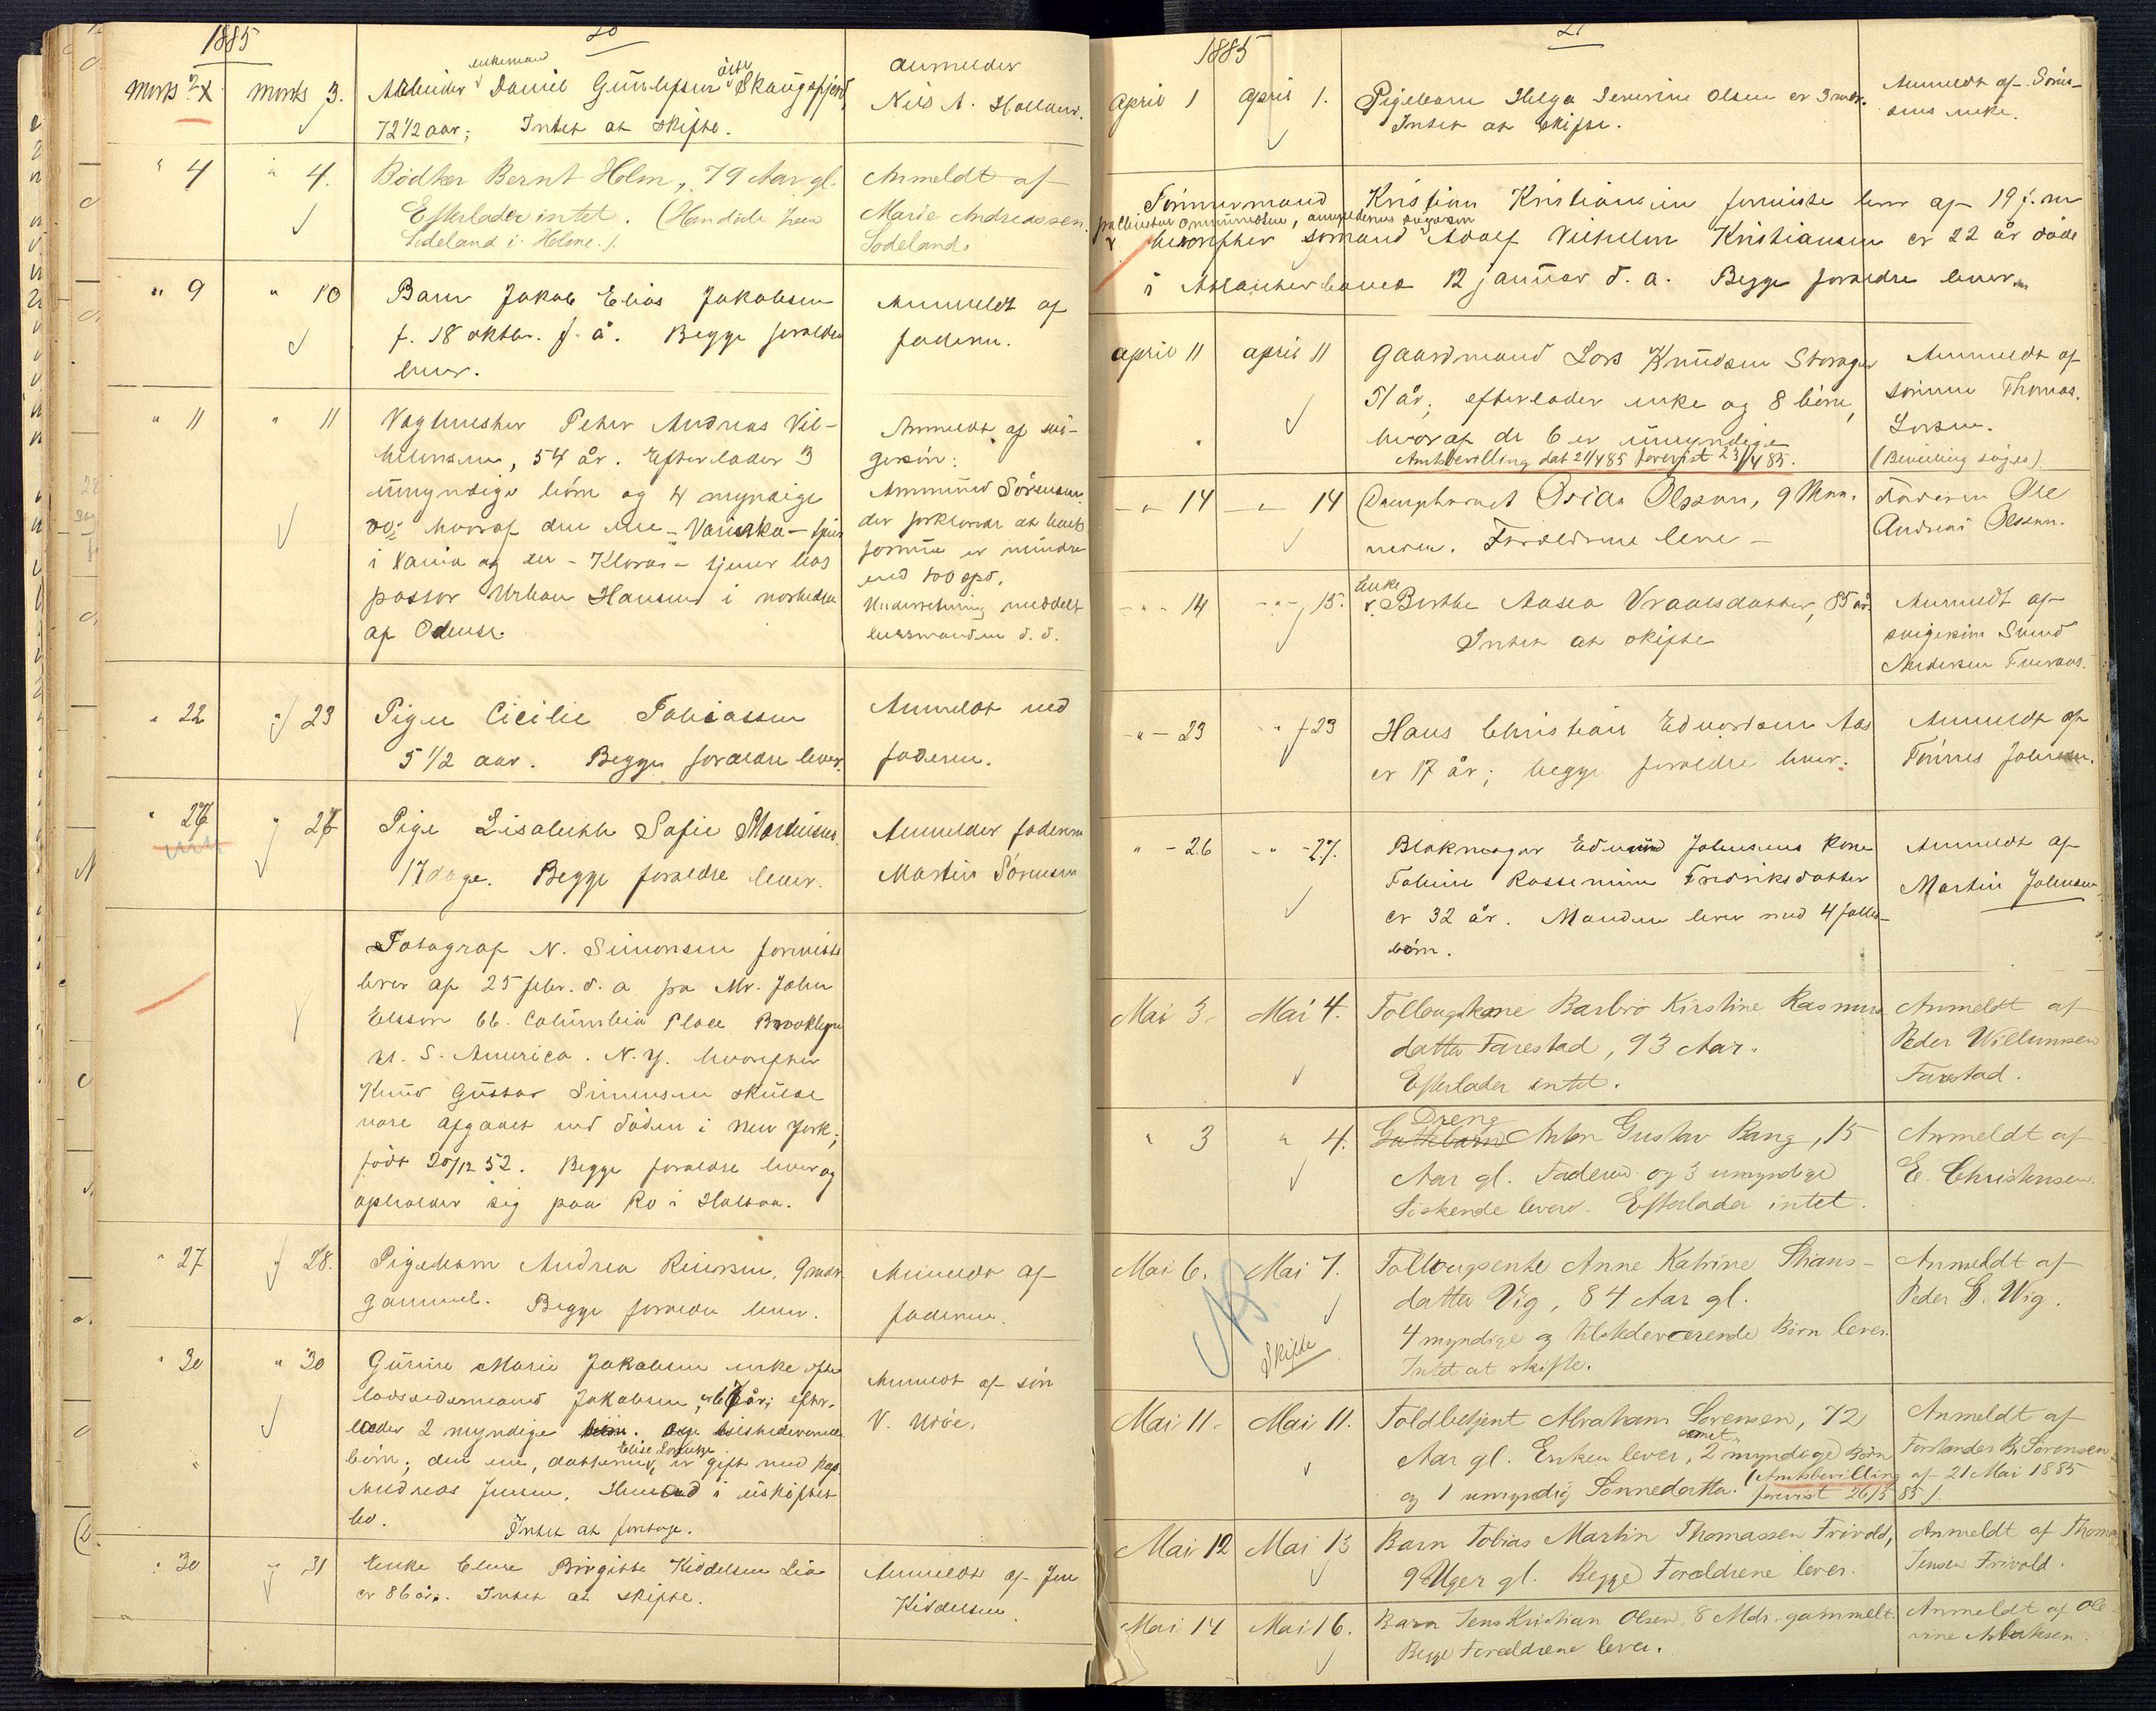 1885
20
Marts 2
Marts 3.
Arbeider enkemand Daniel Gunlefsen
72 1/2 aar; Intet at skifte.
anmelder
Nils A. Holland.
" 4
" 4.
Bødker Bernt Holm, 79 Aar gl.
Efterlader intet. (Han døde hen
Sødeland i Holme.)
Anmeldt af
Marie Andreassen
Sødeland.
" 9
" 10
Barn Jakob Elias Jakobsen
f. 18 oktbr. f. å. Begge forældre
lever.
Anmeldt af
faderen.
" 11
" 11
Vagtmester Peter Andreas Vil-
helmsen, 54 år. Efterlader 3
umyndige børn og 4 myndige
do; hvoraf den ene - Varinka - tjener
i Vania og en - Klara - tjener hos
pastor Urban Hansen i nærheden
af Odense.
Anmeldt af svi-
gersøn:
Ammund Sørensen,
der forklarer at boets
formue er mindre
end 400 spd.
Underretning meddelt
lensmanden d. d.
" 22
" 23
Pigen Cicilie Tobiassen
5 1/2 aar. Begge forældre lever.
Anmeldt ved
faderen.
" 26
" 26
Pige Lisabeth Sofie Martinsen
17 dage. Begge forældre lever.
Anmelder faderen
Martin Sørensen
Fotograf N. Simonsen forviste
brev af 25 febr. d. a. fra Mr. John
Elsson 66. Columbia Place Brooklyn
U. S. America. N. Y. hvorefter
Knud Gustav Simonsen skulde
være afgaaet ved døden i New York;
født 20/12 52. Begge forældre lever og
opholder sig paa Ro i Haltaa.
" 27
" 28.
Pigebarn Andrea Reiersen, 9 mdr.
gammel. Begge forældre lever.
Anmeldt af
faderen.
" 30
" 30
Gurine Marie Jakobsen enke efter
lodsoldermand Jakobsen, er 67 år; efter-
lader 2 myndige tilstedeværende
børn; den ene, datteren, Elise er gift med kap.
Andreas Jensen. Hensad i uskiftet
bo. Intet at foretage.
Anmeldt af søn
V. Udøe.
" 30
" 31
Enke Elene Birgitte Kiddelsen Lia
er 86 år. Intet at skifte.
Anmeldt af Jen
Kiddelsen.
1885
21
april 1
april 1.
Pigebarn Helga Severine Olsen er 3 mdr.
Intet at skifte.
Anmeldt af Sørin-
sens enke.
Tømmermand Kristian Kristiansen forviste brev af 19 f. m
hvorefter sømand Adolf Vilhelm Kristiansen er 22 år døde
i Atlanterhavet 12 januar d. a. Begge forældre lever.
april 11
april 11
Gaardmand Lars Knudsen Storager
51 år; efterlader enke og 8 børn,
hvoraf de 6 er umyndige
Amtsbevilling dat 21/4 85 forevist 23/4 85.
Anmeldt af
sønnen Thomas
Larsen.
(Bevilling søges)
- " - 14
- " - 14
Oscar Olsson, 9 Mdr.
Forældrene lever -
Faderen Ole
Andreas Olsson.
- " - 14
- " - 15.
Enke Berthe Aasea Vraalsdatter, 85 år.
Intet at skifte
Anmeldt af
svigersøn Svend
Andersen Fueraas.
- " - 23
" 23
Hans Christian Edvardsen Aas
er 17 år; begge forældre lever.
Anmeldt af
Tønnes Johnsen.
" - 26
- " - 27.
Blokmager Edmund Johnsens kone
Tobine Rassemine Fredriksdatter
er 32 år. Manden lever med 4 fælles-
børn.
Anmeldt af
Martin Johnsen
Mai 3.
Mai 4.
Follougskone Barbro Kirstine Rasmus
datter Farestad, 93 Aar.
Efterlader intet.
Anmeldt af
Peder Willumsen
Farestad.
" 3
" 4.
Dreng
Guttebarn Anton Gustav Bang, 15
Aar gl. Faderen og 3 umyndige
Søskende lever. Efterlader intet.
Anmeldt af
E. Christensen.
Mai 6.
Mai 7.
Skifte
Follougsenke Anne Katrine Thans-
datter Vig, 84 Aar gl.
4 myndige og tilstedeværende Børn lever.
Intet at skifte.
Anmeldt af
Peder G. Wig.
Mai 11.
Mai 11.
Toldbetjent Abraham Sørensen, 72
Aar gl. Enken lever, samt 2 myndige Børn
og 1 umyndig Sønnedatter. (Amtsbevilling af 21 Mai 1885
forevist 26/5 85).
Anmeldt af
Forstander B. Sørensen
Mai 12
Mai 13
Barn Tobias Martin Thomassen Frivold,
9 Uger gl. Begge Forældrene lever.
Anmeldt af Thomas
Jensen Frivold.
Mai 14
Mai 16.
Barn Jens Kristian Olsen, 8 Mdr. gammelt.
Begge Forældrene lever.
Anmeldt af Ole-
vine